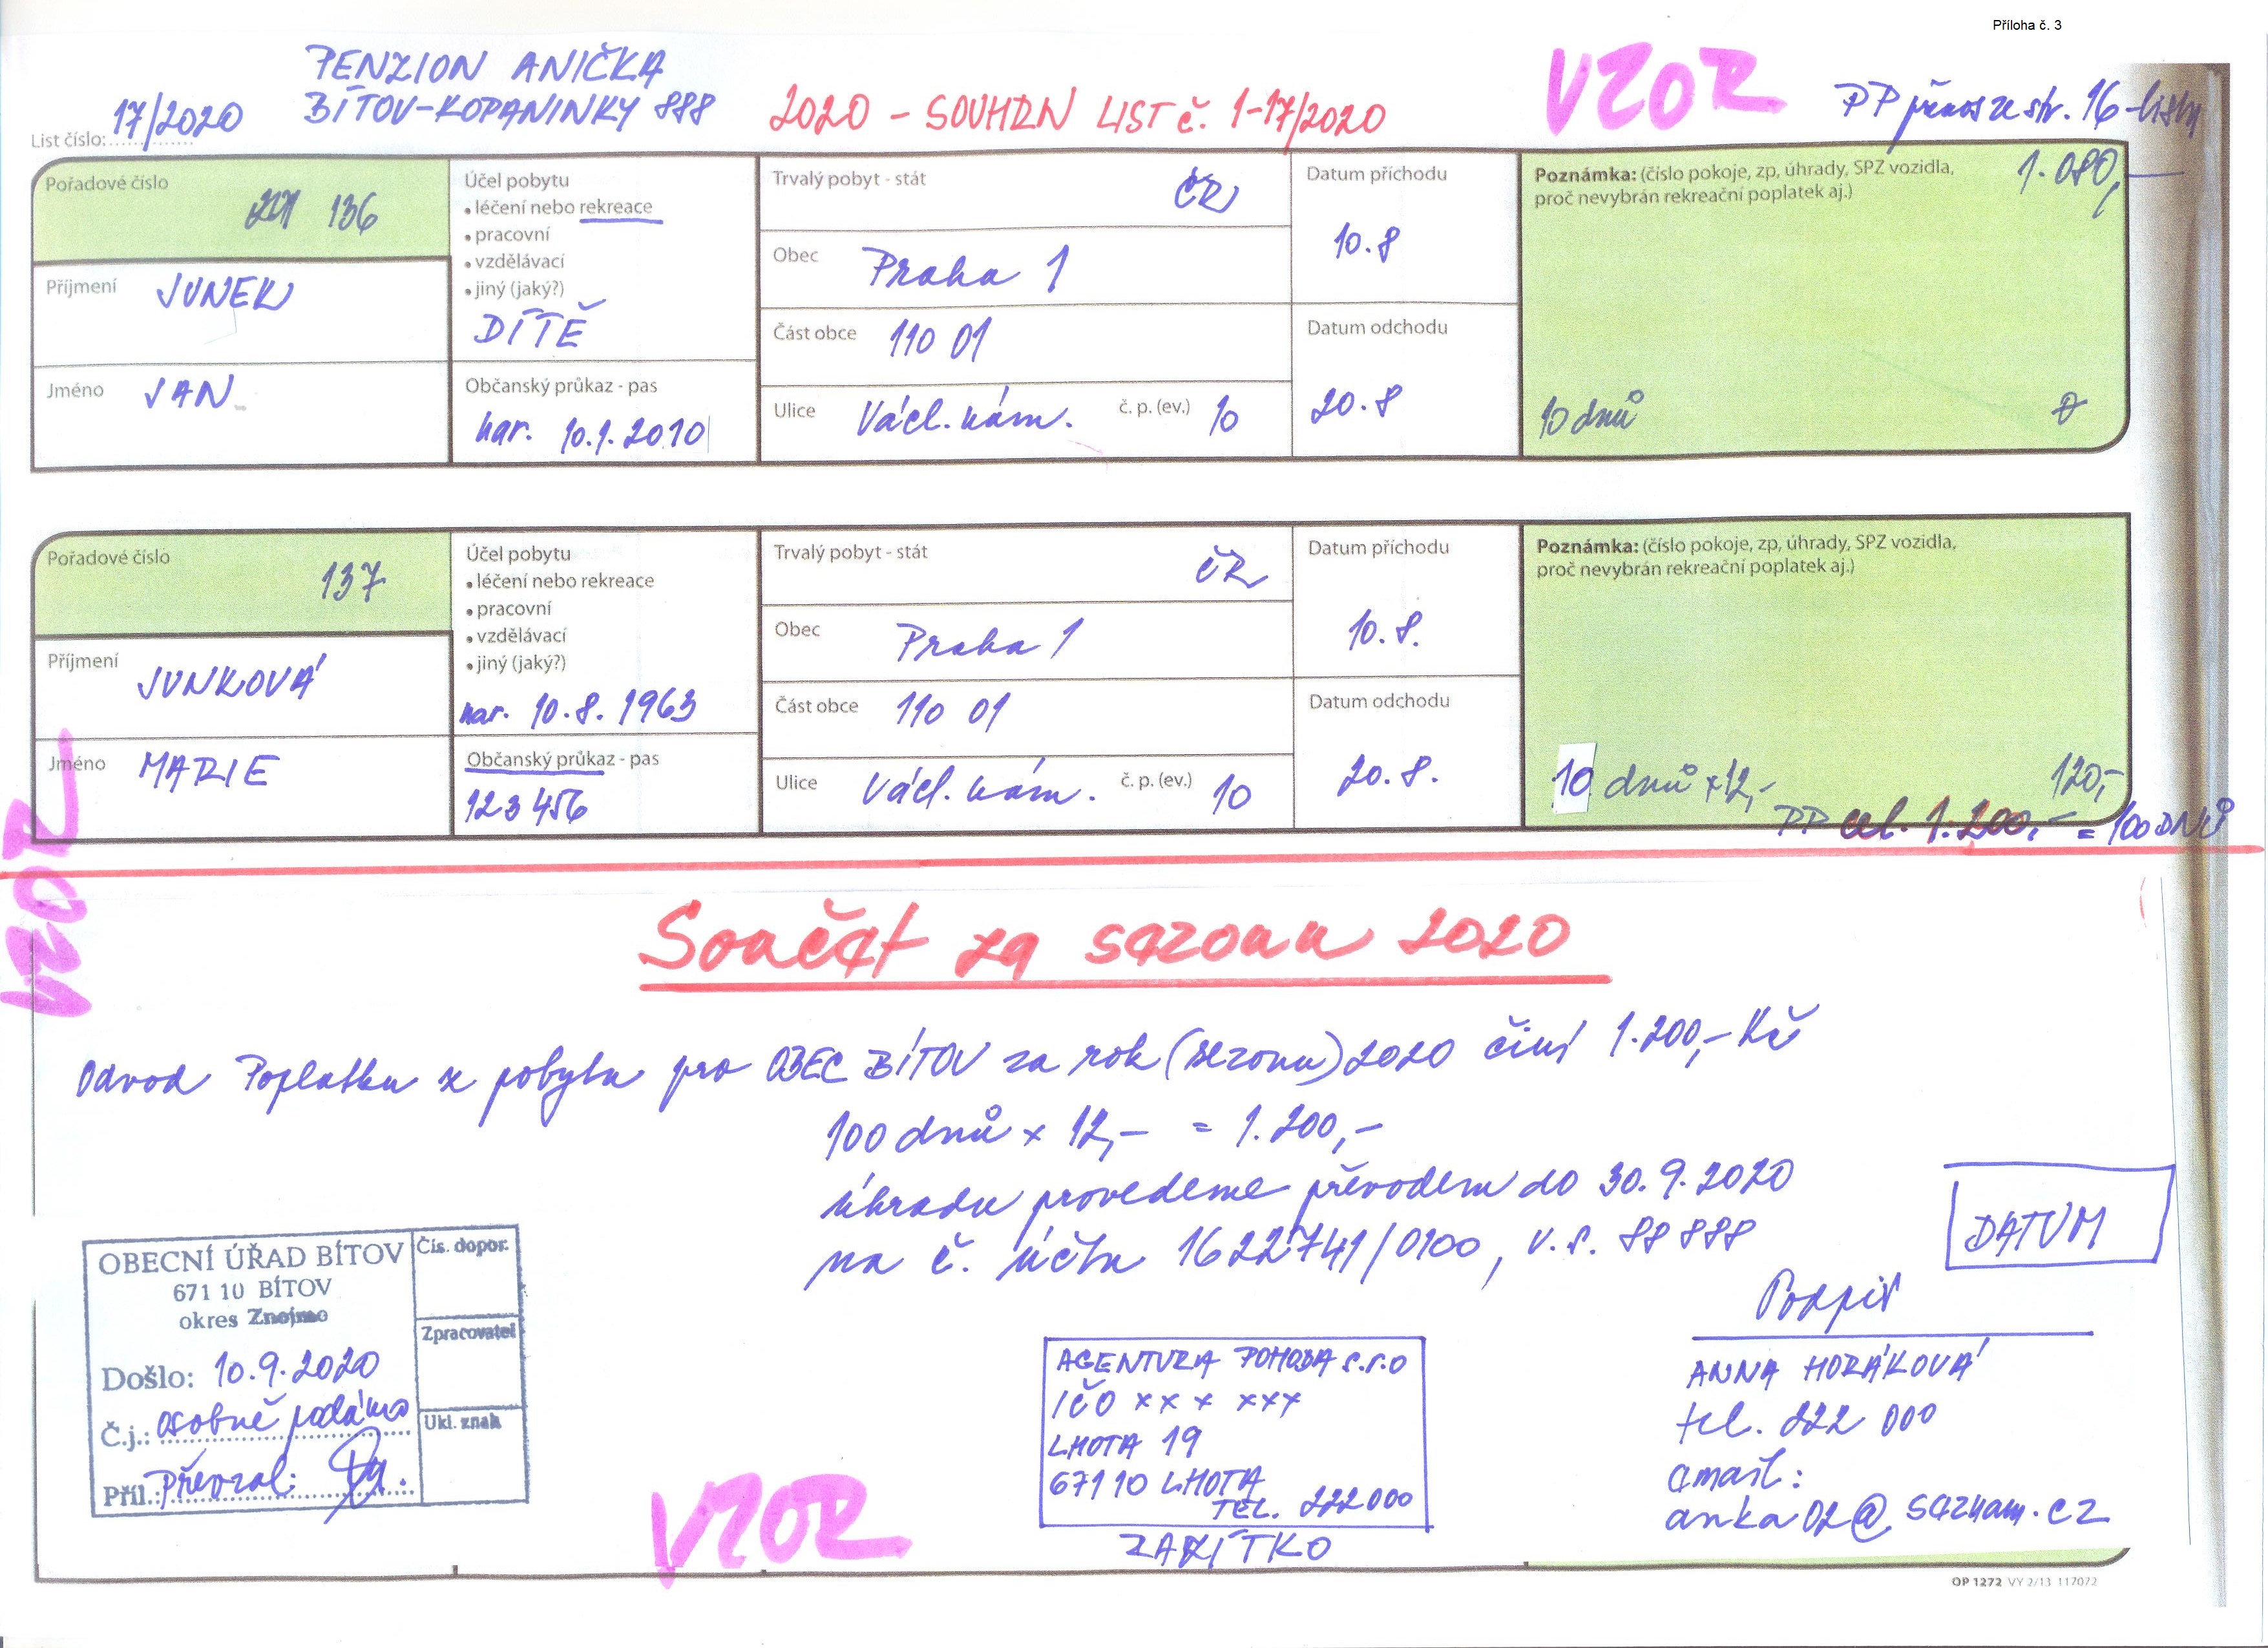 Příloha č. 3
PENZION ANIČKA
BÍTOV-KOPANINKY 888
2020 - SOUHRN LIST č. 1-17/2020
VZOR
PP přenos ze str. 16 - listu
List číslo: 17/2020
Pořadové číslo
136
Příjmení JUNEK
Jméno JAN
Účel pobytu
• léčení nebo rekreace
• pracovní
• vzdělávací
• jiný (jaký?)
DÍTĚ
Občanský průkaz - pas
nar. 10.1.2010
Trvalý pobyt - stát ČR
Obec Praha 1
Část obce 110 01
Ulice Václ. nám. č. p. (ev.) 10
Datum příchodu
10.8
Datum odchodu
20.8
Poznámka: (číslo pokoje, zp, úhrady, SPZ vozidla, 1.080,-
proč nevybrán rekreační poplatek aj.)
10 dnů 0
Pořadové číslo
137
Příjmení JUNKOVÁ
Jméno MARIE
Účel pobytu
• léčení nebo rekreace
• pracovní
• vzdělávací
• jiný (jaký?)
nar. 10.8.1963
Občanský průkaz - pas
123 456
Trvalý pobyt - stát ČR
Obec Praha 1
Část obce 110 01
Ulice Václ. nám. č. p. (ev.) 10
Datum příchodu
10.8.
Datum odchodu
20.8.
Poznámka: (číslo pokoje, zp, úhrady, SPZ vozidla,
proč nevybrán rekreační poplatek aj.)
10 dnů x 12,- 120,-
PP cel. 1.200,- = 100 DNŮ
VZOR
Součet za sezonu 2020
Odvod Poplatku z pobytu pro OBEC BÍTOV za rok (sezonu) 2020 činí 1.200,- Kč
100 dnů x 12,- = 1.200,-
úhradu provedeme převodem do 30.9.2020
na č. účtu 1622741/0100, v.s. 88 888
DATUM
OBECNÍ ÚŘAD BÍTOV
671 10 BÍTOV
okres Znojmo
Došlo: 10.9.2020
Č.j.: osobně podáno
Příl.: Převzal:
Čís. dopor.
Zpracovatel
Ukl. znak
VZOR
AGENTURA POHODA s.r.o
IČO x x x x x x
LHOTA 19
671 10 LHOTA
TEL. 222 000
RAZÍTKO
Podpis
ANNA HORÁKOVÁ
tel. 222 000
email:
anka02@seznam.cz
OP 1272 VY 2/13 117072